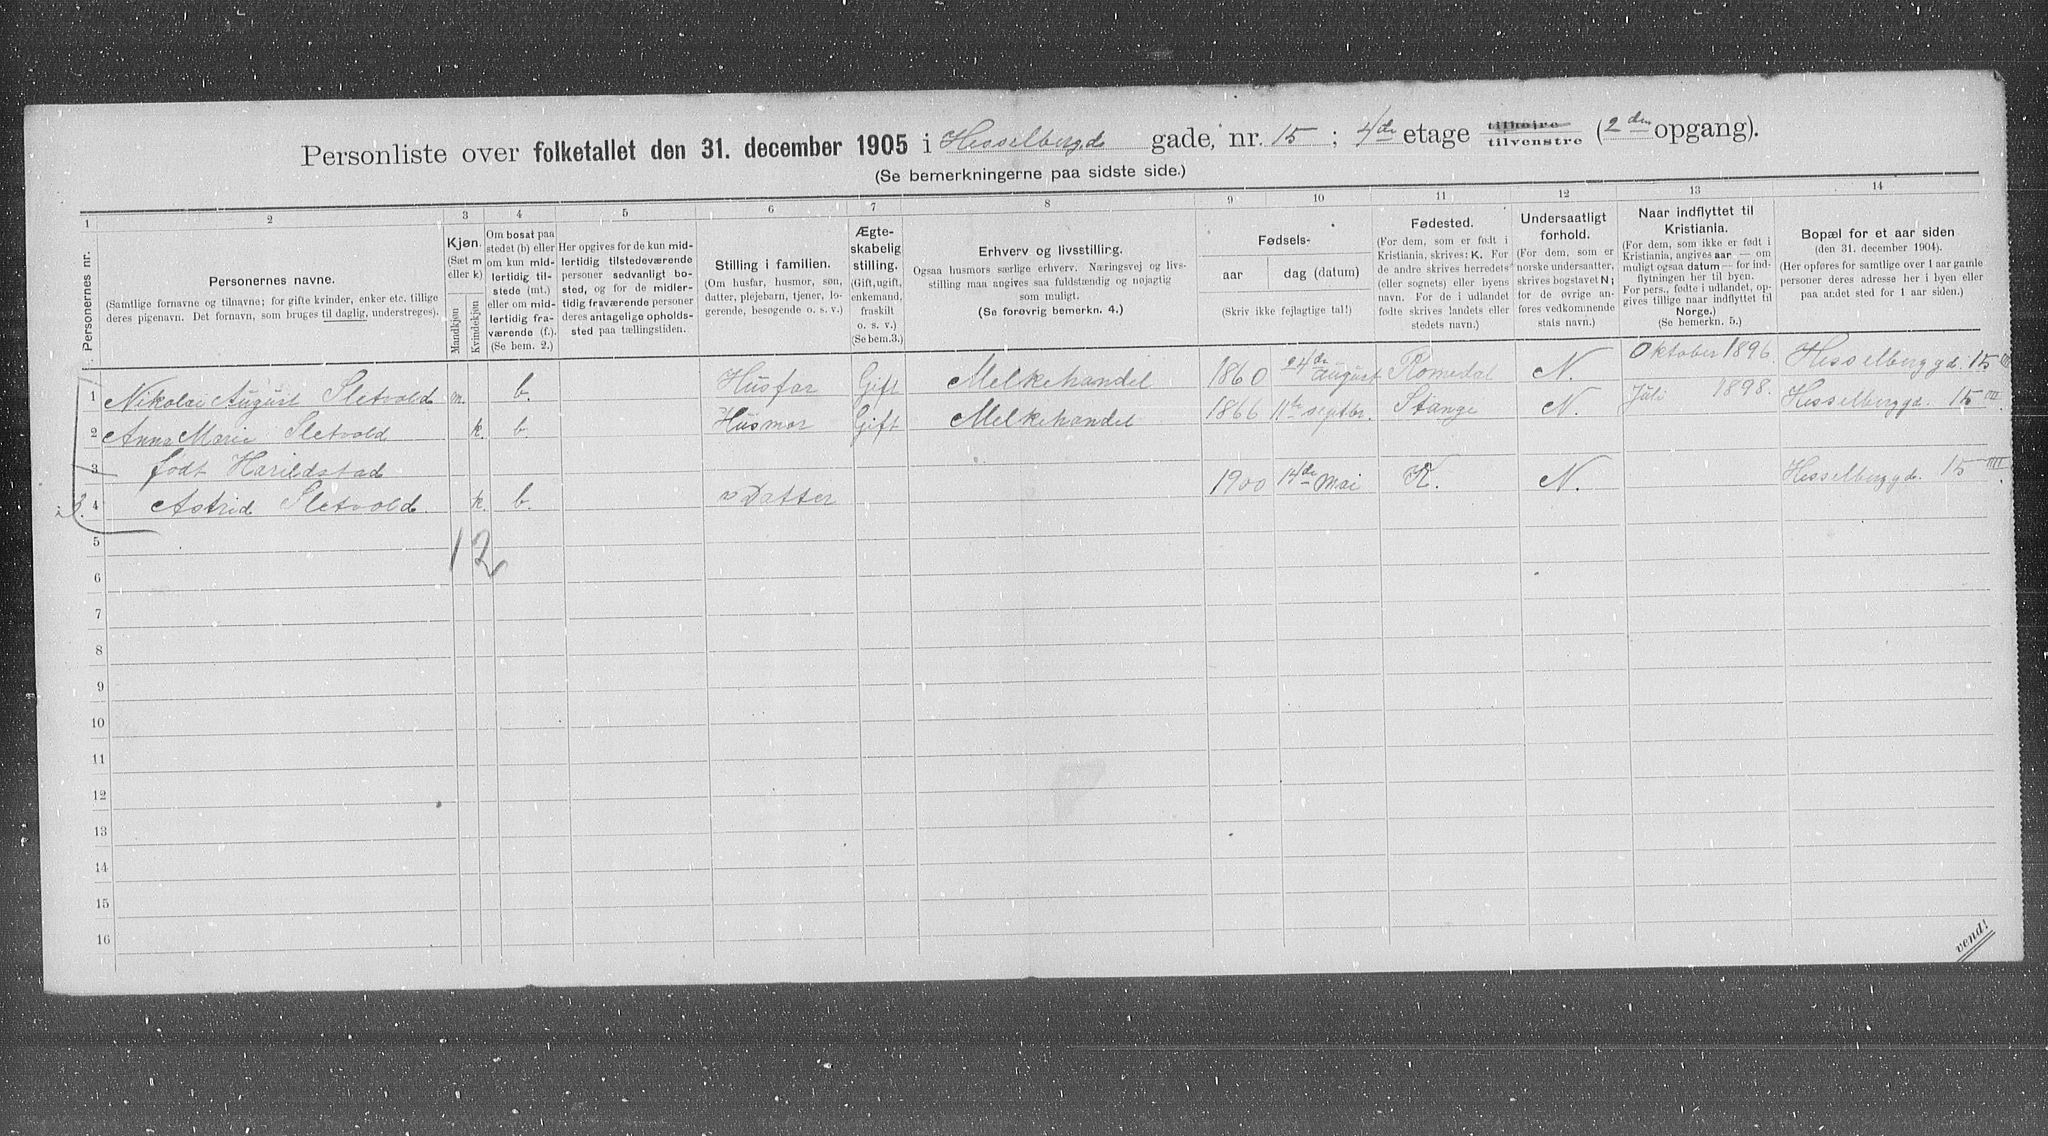 Personliste over folketallet den 31. december 1905 i Hesselbergd gade, nr. 15 ; 4de etage tilhøire tilvenstre (2den opgang).
(Se bemerkningerne paa sidste side.)
1 2 3 4 5 6 7 8 9 10 11 12 13 14
Personernes nr.
Personernes navne.
(Samtlige fornavne og tilnavne; for gifte kvinder, enker etc. tillige
deres pigenavn. Det fornavn, som bruges til daglig, understreges).
Kjøn.
(Sæt m
eller k)
Mandkjøn
Kvindekjøn
Om bosat paa
stedet (b) eller
om kun mid-
lertidig til-
stede (mt.)
eller om mid-
lertidig fra-
værende (f.).
(Se bem. 2.)
Her opgives for de kun mid-
lertidig tilstedeværende
personer sedvanligt bo-
sted, og for de midler-
tidig fraværende personer
deres antagelige opholds-
sted paa tællingstiden.
Stilling i familien.
(Om husfar, husmor, søn,
datter, plejebarn, tjener, lo-
gerende, besøgende o. s. v.)
Ægte-
skabelig
stilling.
(Gift, ugift,
enkemand,
fraskilt
o. s. v.)
(Se bem.3.)
Erhverv og livsstilling.
Ogsaa husmors særlige erhverv. Næringsvej og livs-
stilling maa angives saa fuldstændig og nøjagtig
som muligt.
(Se forøvrig bemerkn. 4.)
Fødsels-
aar dag (datum)
(Skriv ikke fejlagtige tal!)
Fødested.
(For dem, som er født i
Kristiania, skrives: K. For
de andre skrives herredets
(eller sognets) eller byens
navn. For de i udlandet
fødte skrives landets eller
stedets navn.)
Undersaatligt
forhold.
(For dem, som er
norske undersaatter,
skrives bogstavet N;
for de øvrige an-
føres vedkommende
stats navn.)
Naar indflyttet til
Kristiania.
(For dem, som ikke er født i
Kristiania, angives aar — om
muligt ogsaa datum — for ind-
flytningen her til byen.
For pers., fødte i udlandet, op-
gives tillige naar indflyttet til
Norge.)
(Se bemerkn. 5.)
Bopæl for et aar siden
(den 31. december 1904).
(Her opføres for samtlige over 1 aar gamle
personer deres adresse her i byen eller
paa andet sted for 1 aar siden.)
1 Nikolai August Sletvold m. b. Husfar Gift Melkehandel 1860 24de august Romedal N. Oktober 1896. Hesselberggd. 15 III
2 Anna Marie Sletvold k. b. Husmor Gift Melkehandel 1866 11te septbr. Stange N. Juli 1898. Hesselberggd. 15 III
3 født Harildstad
3. 4 Astrid Sletvold. k. b. Datter 1900 14de Mai K. N. Hesselberggd. 15 IIII
5
12
6
7
8
9
10
11
12
13
14
15
16
vend!